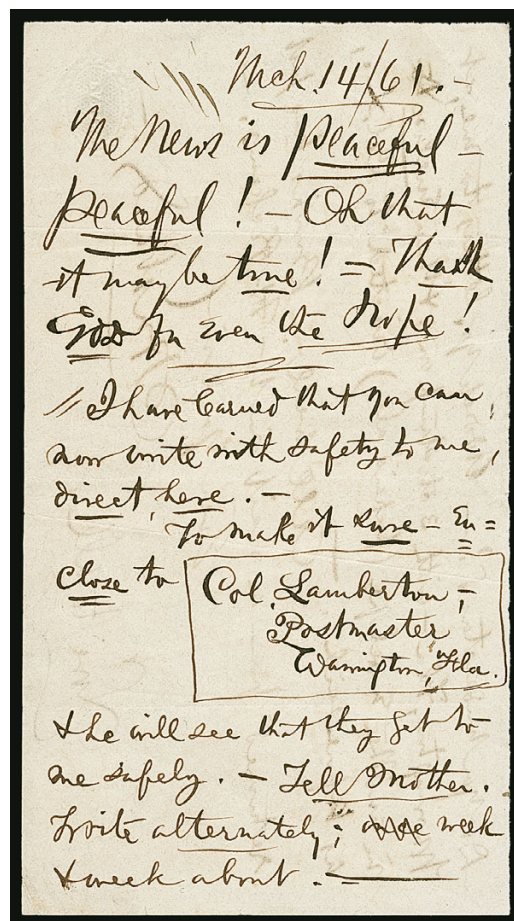 Mch. 14/61. -
The News is peaceful -
peaceful! - Oh that
it may be true! - Thank
God for even the hope!
// I have learned that you can
now write with safety to me,
direct, here. -
To make it sure - En=
close to
Col. Lamberton -
Postmaster
Warrington, Fla.
& he will see that they get to
me safely. - Tell Mother.
Write alternately; week
& week about. -